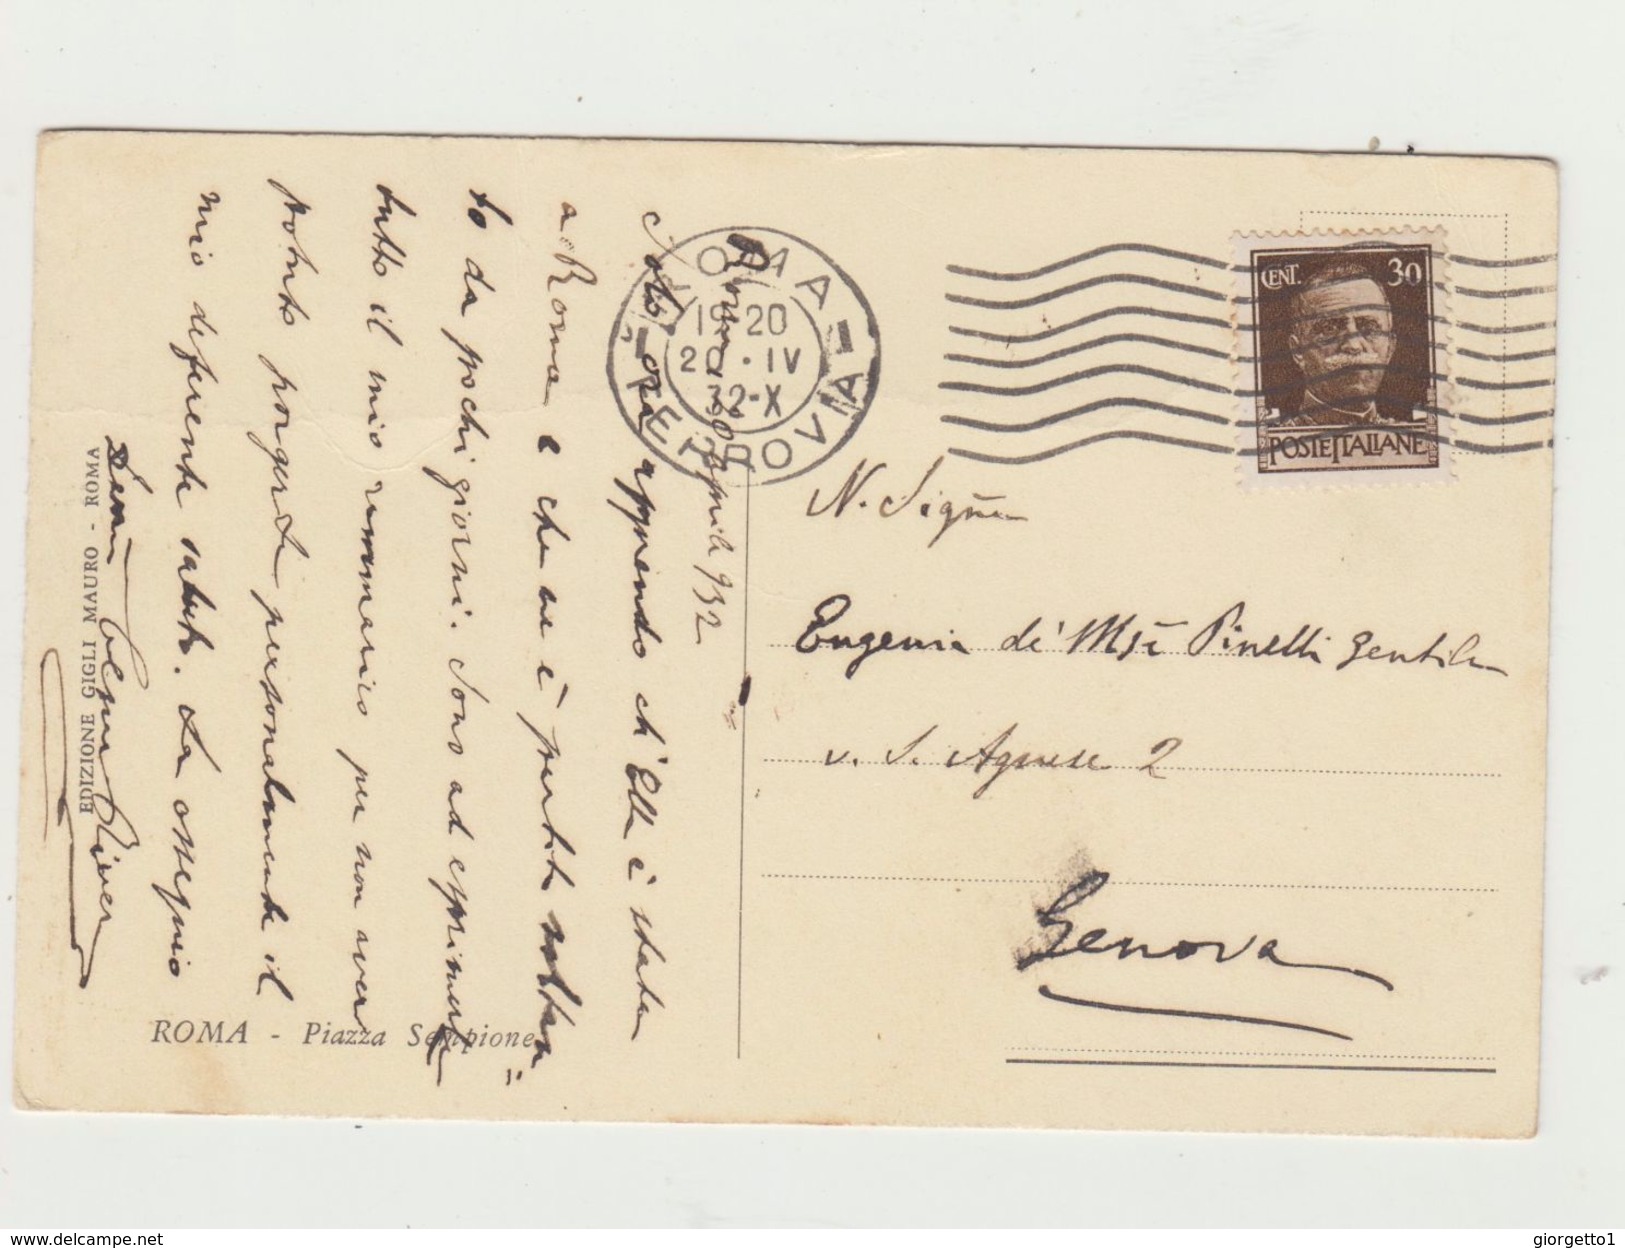 Roma 20 Aprile 932
Solo ora apprendo ch'Ella è stata
a Roma e che ne è partita soltan=
to da pochi giorni. Sono ad esprimerle
tutto il mio rammarico per non aver
potuto porgerle personalmente il
mio deferente saluto. La ossequio
EDIZIONE GIGLI MAURO - ROMA
ROMA - Piazza Sempione
ROMA - FERROVIA
19-20
20 · IV
32-X
CENT. 30
POSTE ITALIANE
N. Signa
Eugenia de' Msi Pinelli Gentile
v. S. Agnese 2
Genova
www.delcampe.net
giorgetto1